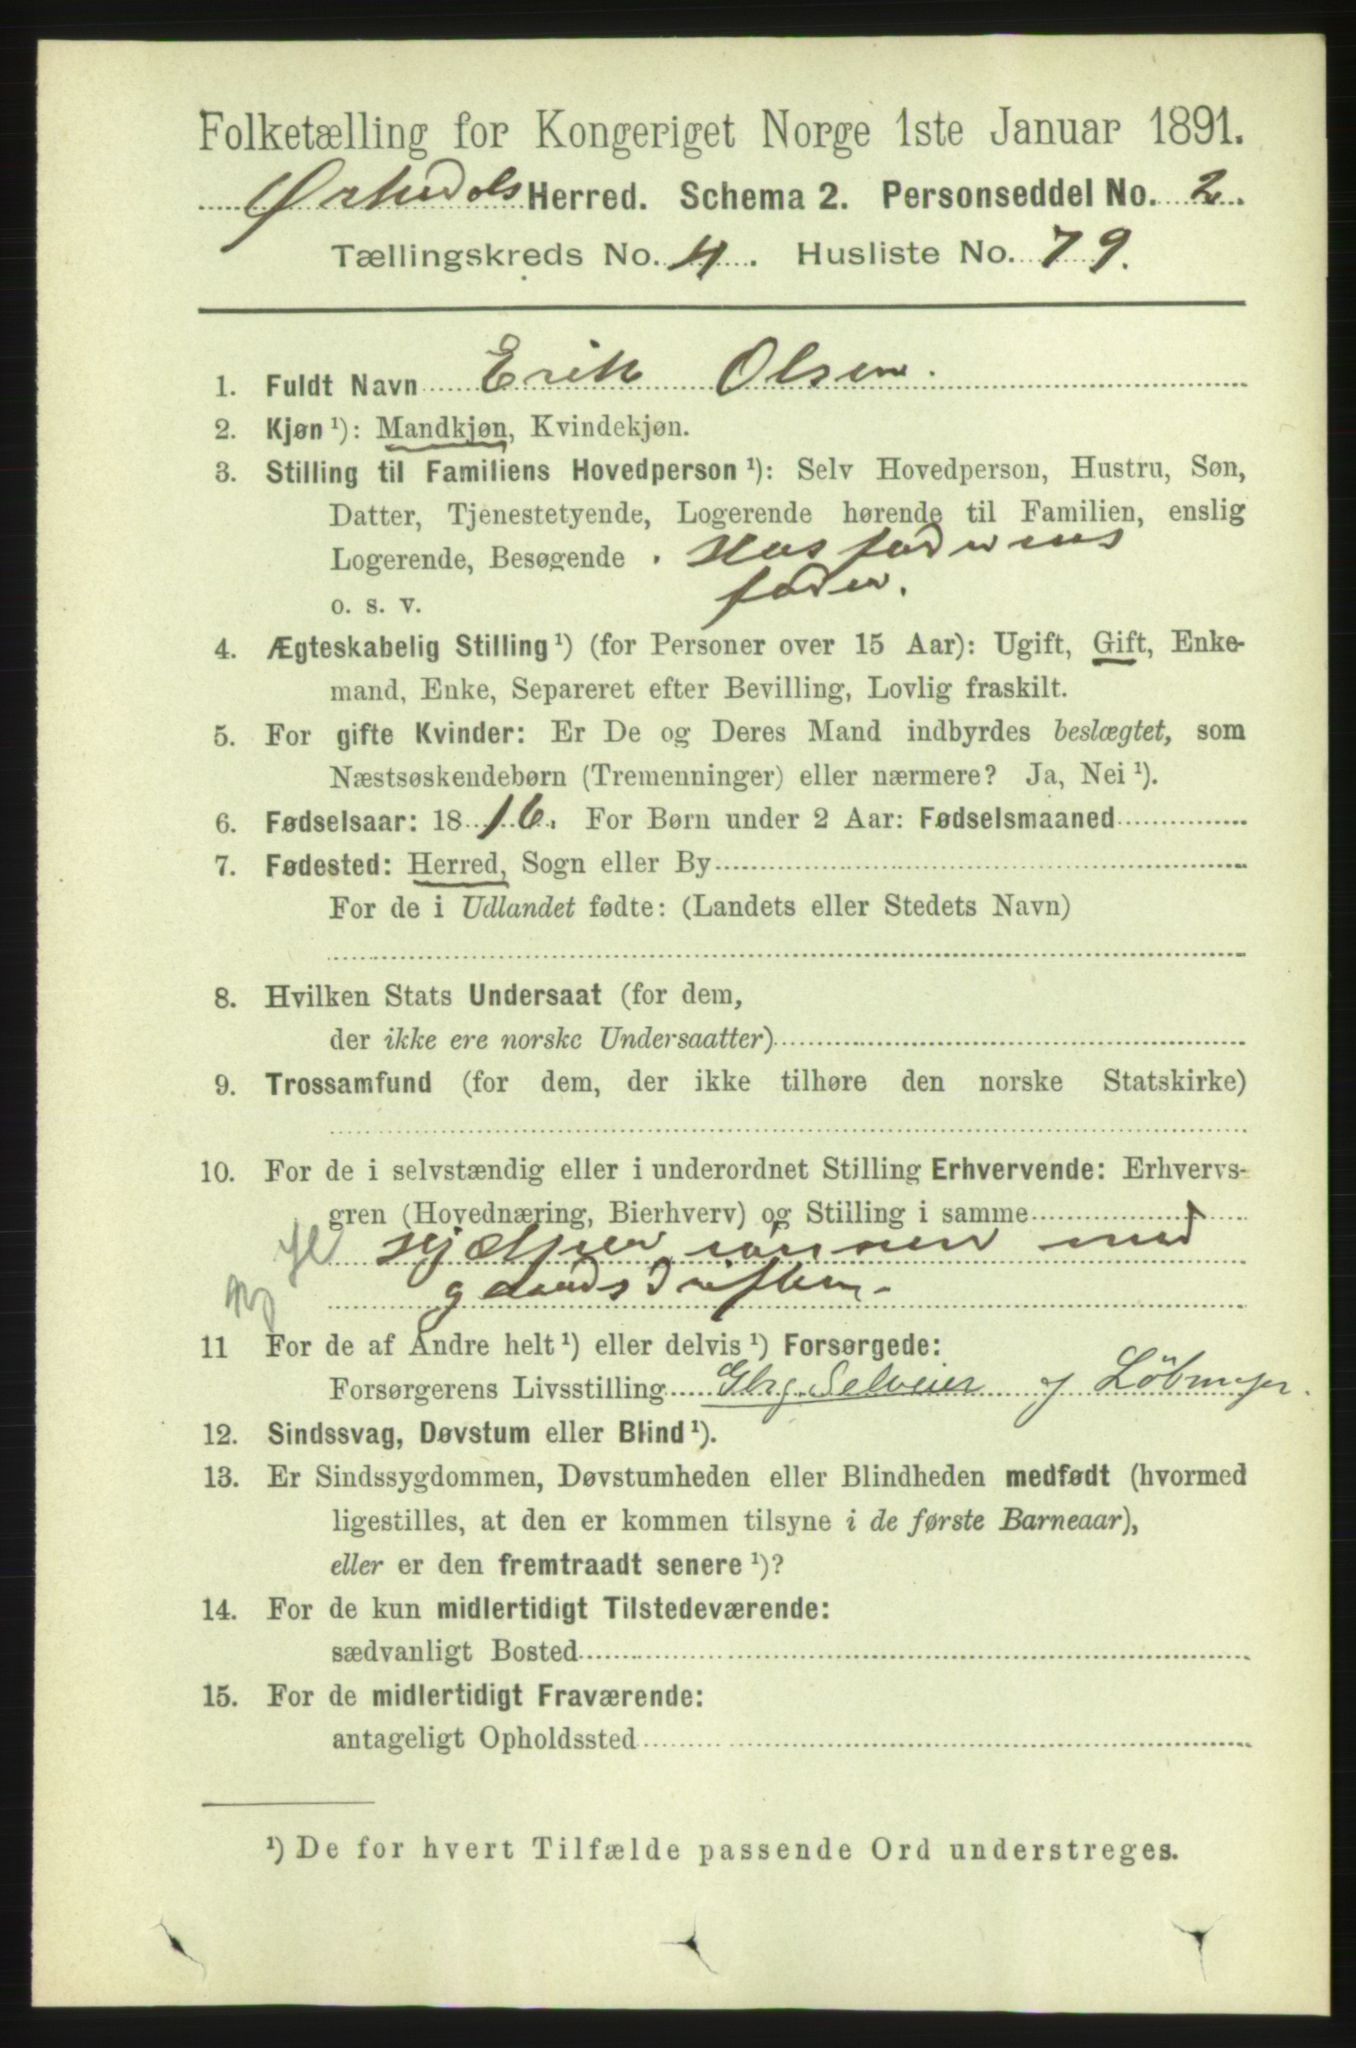 Folketælling for Kongeriget Norge 1ste Januar 1891.
Ørkedals Herred. Schema 2. Personseddel No. 2.
Tællingskreds No. 4. Husliste No. 79.
1. Fuldt Navn Erik Olsen.
2. Kjøn ¹): Mandkjøn, Kvindekjøn.
3. Stilling til Familiens Hovedperson ¹): Selv Hovedperson, Hustru, Søn,
Datter, Tjenestetyende, Logerende hørende til Familien, enslig
Logerende, Besøgende . Husfaderens
o. s. v. fader.
4. Ægteskabelig Stilling ¹) (for Personer over 15 Aar): Ugift, Gift, Enke-
mand, Enke, Separeret efter Bevilling, Lovlig fraskilt.
5. For gifte Kvinder: Er De og Deres Mand indbyrdes beslægtet, som
Næstsøskendebørn (Tremenninger) eller nærmere? Ja, Nei ¹).
6. Fødselsaar: 1816. For Børn under 2 Aar: Fødselsmaaned
7. Fødested: Herred, Sogn eller By
For de i Udlandet fødte: (Landets eller Stedets Navn)
8. Hvilken Stats Undersaat (for dem,
der ikke ere norske Undersaatter)
9. Trossamfund (for dem, der ikke tilhøre den norske Statskirke)
10. For de i selvstændig eller i underordnet Stilling Erhvervende: Erhvervs-
gren (Hovednæring, Bierhverv) og Stilling i samme
Hjælper sønnen med
gaardsdriften.
11 For de af Andre helt ¹) eller delvis ¹) Forsørgede:
Forsørgerens Livsstilling Gbrg. Selveier
12. Sindssvag, Døvstum eller Blind ¹).
13. Er Sindssygdommen, Døvstumheden eller Blindheden medfødt (hvormed
ligestilles, at den er kommen tilsyne i de første Barneaar),
eller er den fremtraadt senere ¹)?
14. For de kun midlertidigt Tilstedeværende:
sædvanligt Bosted
15. For de midlertidigt Fraværende:
antageligt Opholdssted
¹) De for hvert Tilfælde passende Ord understreges.